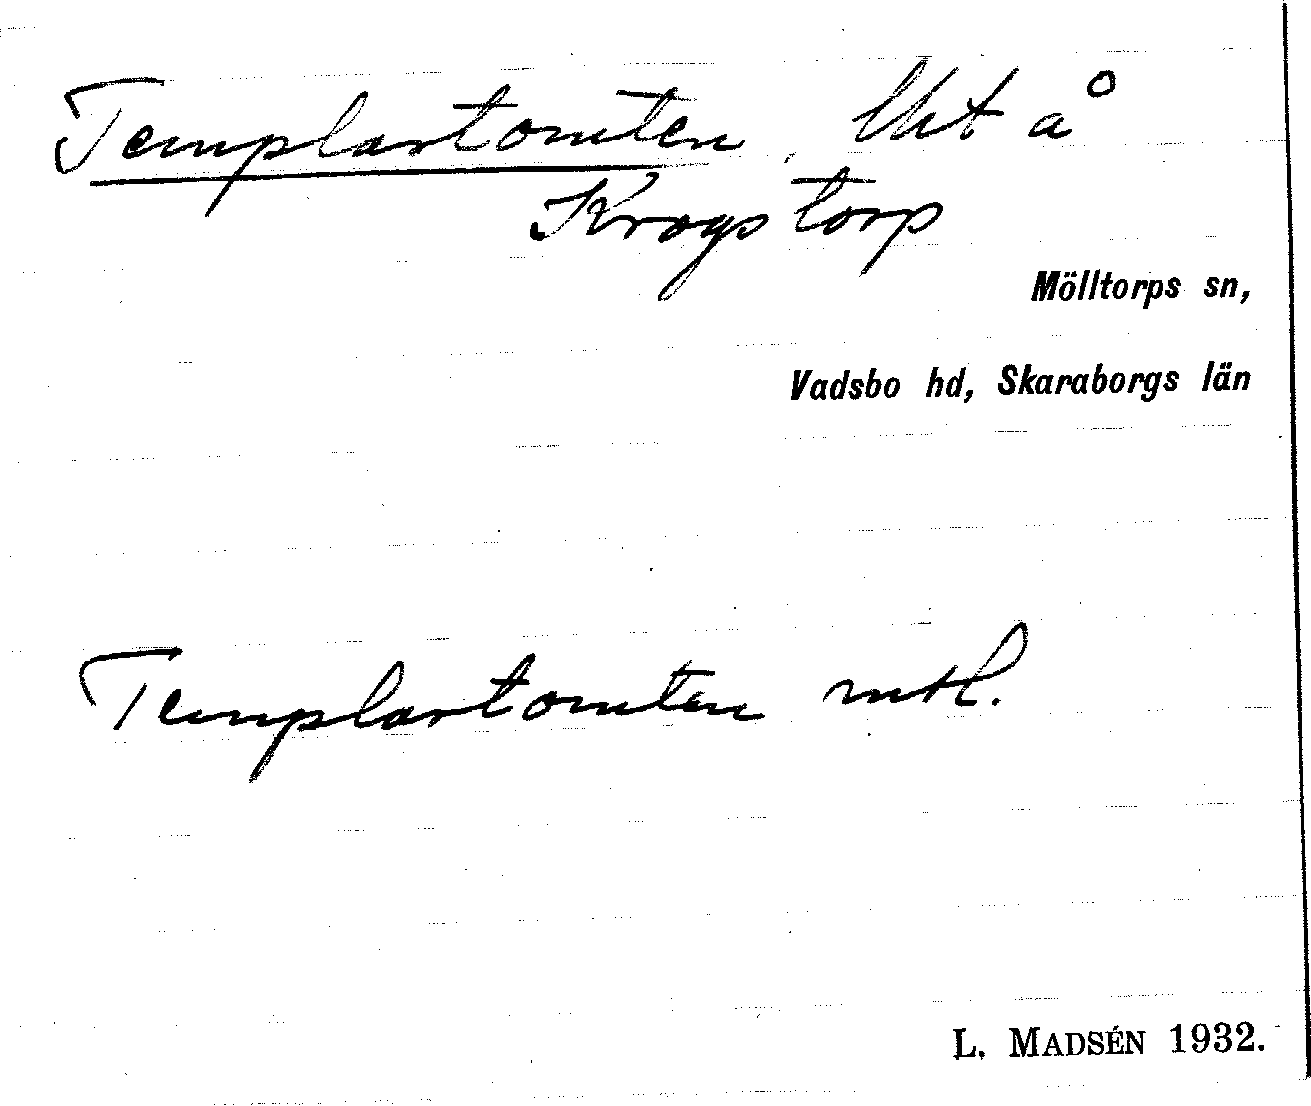 Templartomten, lht å
Krogstorp
Mölltorps sn,
Vadsbo hd, Skaraborgs län
Templartomten mtl.
L. MADSÉN 1932.